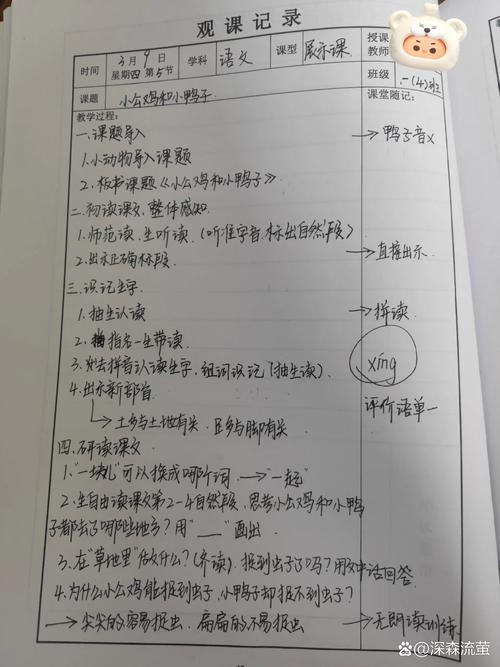 观课记录
时间 3月9日 星期四第5节 学科 语文 课型 展示课 授课教师
班级 一(4)班
课题 小公鸡和小鸭子 课堂随记:
教学过程:
一.课题导入 → 鸭子音x
1.小动物导入课题
2.板书课题《小公鸡和小鸭子》.
二.初读课文,整体感知
1.师范读.生听读.(听准字音.标出自然段)
2.出示正确标段. →直接出示.
三.识记生字
1.抽生认读 →拼读.
2.指名一生带读. xíng
3.去拼音认读生字,组词识记(抽生读).
4.出示新部首 评价语单一
↳土字旁与土地有关.足字旁与脚有关
四.研读课文
1."一块儿"可以换成哪个词.→"一起"
2.生自由读课文第2-4自然段.思考小公鸡和小鸭
子都去了哪些地方?用"___"画出.
3.在"草地里"做什么?(齐读).捉到虫子了吗?用文中话回答.
4.为什么小公鸡能捉到虫子,小鸭子却捉不到虫子?
→尖尖的容易捉虫.扁扁的不易捉虫 →无朗读训练.
@深森流萤